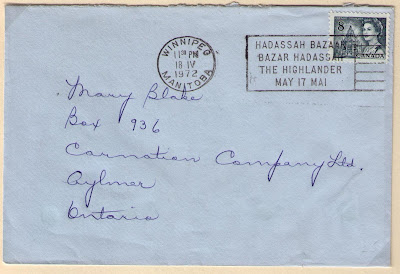 WINNIPEG
11 PM
18 IV
1972
MANITOBA
HADASSAH BAZAAR
BAZAR HADASSAH
THE HIGHLANDER
MAY 17 MAI
8
CANADA
Mary Blake
Box 936
Carnation Company Ltd.
Aylmer
Ontario